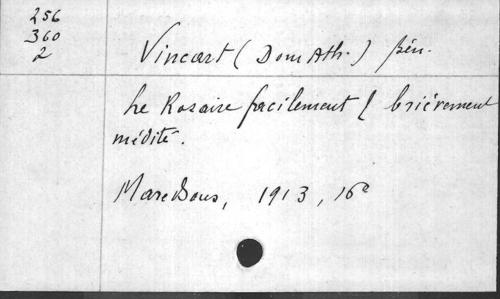 256
360
2
Vincart (Dom Ath.) bén.
Le Rosaire facilement & brièvement
médité.
Maredsous, 1913, 16°